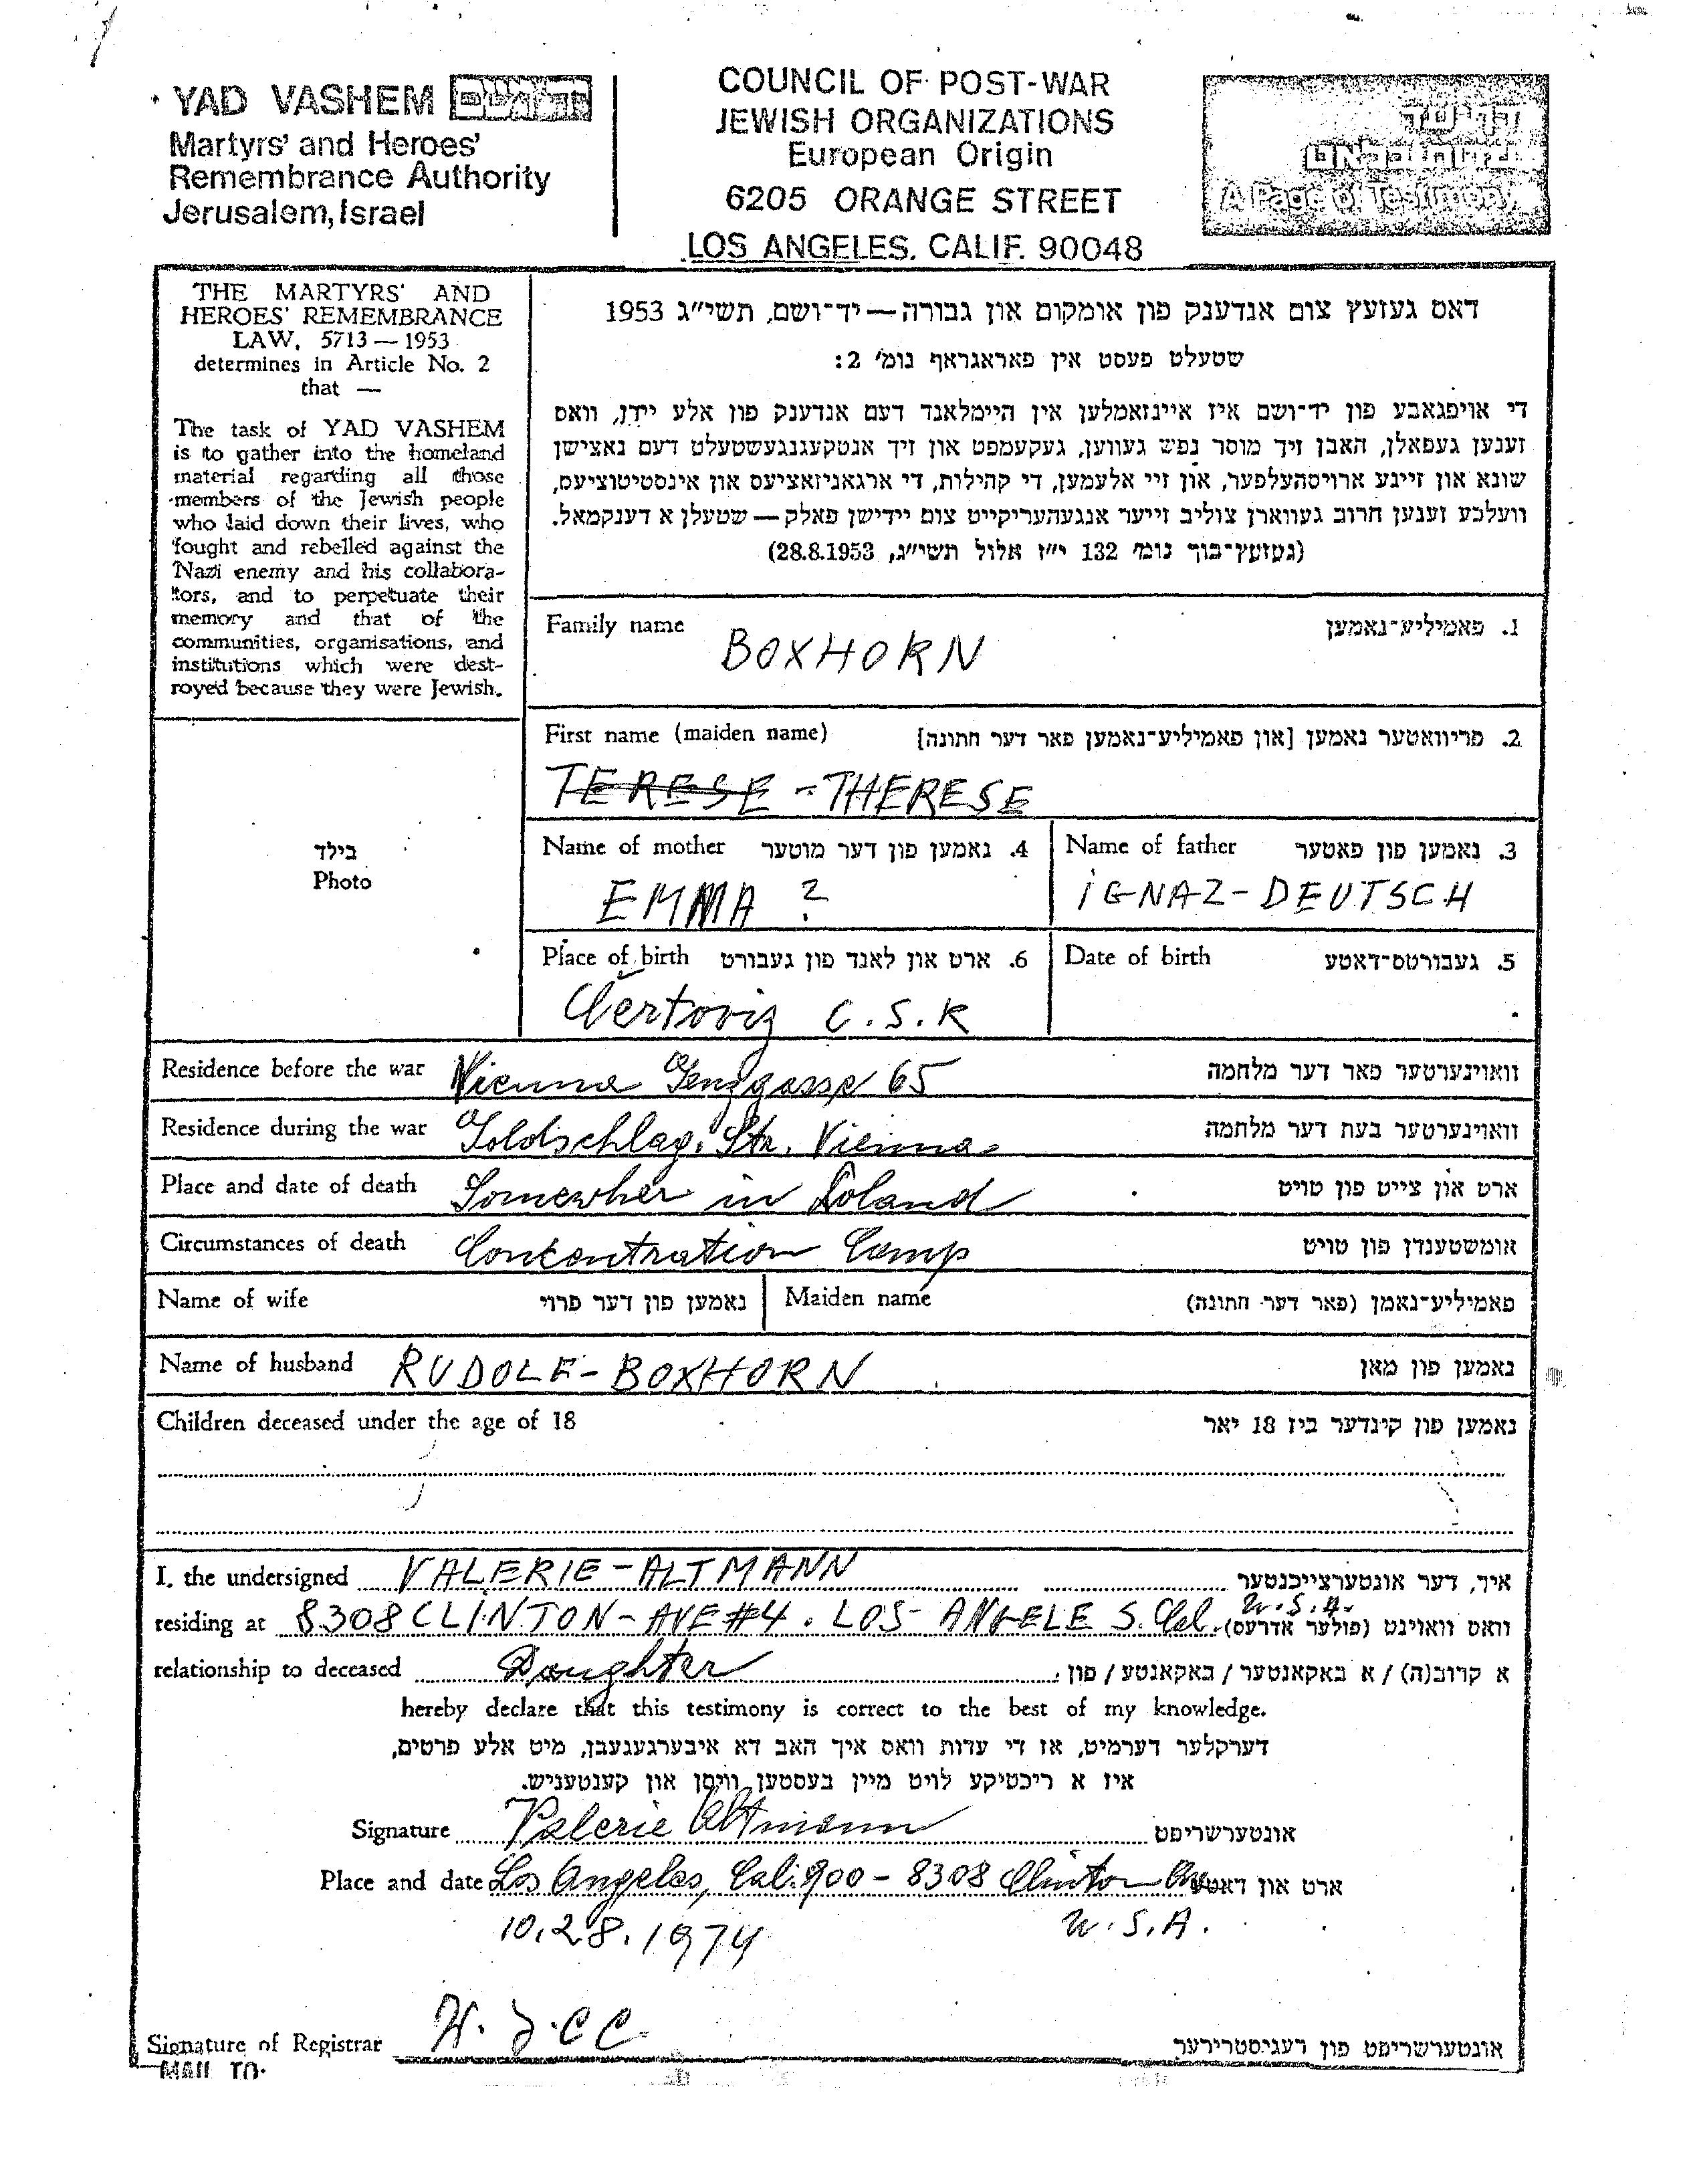 YAD VASHEM יד ושם
Martyrs' and Heroes'
Remembrance Authority
Jerusalem, Israel
COUNCIL OF POST-WAR
JEWISH ORGANIZATIONS
European Origin
6205 ORANGE STREET
LOS ANGELES. CALIF. 90048
A Page of Testimony
THE MARTYRS' AND
HEROES' REMEMBRANCE
LAW, 5713 — 1953
determines in Article No. 2
that —
The task of YAD VASHEM
is to gather into the homeland
material regarding all those
members of the Jewish people
who laid down their lives, who
fought and rebelled against the
Nazi enemy and his collabora-
tors, and to perpetuate their
memory and that of the
communities, organisations, and
institutions which were dest-
royed because they were Jewish.
דאס געזעץ צום אנדענק פון אומקום און גבורה — יד־ושם, תשי״ג 1953
שטעלט פעסט אין פאראגראף נומ׳ 2:
די אויפגאבע פון יד־ושם איז איינזאמלען אין היימלאנד דעם אנדענק פון אלע יידן, וואס
זענען געפאלן, האבן זיך מוסר נפש געווען, געקעמפט און זיך אנטקעגנגעשטעלט דעם נאצישן
שונא און זיינע ארויסהעלפער, און זיי אלעמען, די קהילות, די ארגאניזאציעס און אינסטיטוציעס,
וועלכע זענען חרוב געווארן צוליב זייער אנגעהעריקייט צום יידישן פאלק — שטעלן א דענקמאל.
(געזעץ־בוך נומ׳ 132 י״ז אלול תשי״ג, 28.8.1953)
Family name BOXHORN 1. פאמיליע־נאמען
First name (maiden name) 2. פריוואטער נאמען [און פאמיליע־נאמען פאר דער חתונה]
TERESE - THERESE
בילד
Photo
Name of mother 4. נאמען פון דער מוטער Name of father 3. נאמען פון פאטער
EMMA ? IGNAZ - DEUTSCH
Place of birth 6. ארט און לאנד פון געבורט Date of birth 5. געבורטס־דאטע
C.S.R
Residence before the war Vienna Genzgasse 65 וואוינערטער פאר דער מלחמה
Residence during the war Goldschlag. Str. Vienna וואוינערטער בעת דער מלחמה
Place and date of death Somewher in Poland ארט און צייט פון טויט
Circumstances of death Concentration Camp אומשטענדן פון טויט
Name of wife נאמען פון דער פרוי Maiden name פאמיליע־נאמן (פאר דער חתונה)
Name of husband RUDOLF - BOXHORN נאמען פון מאן
Children deceased under the age of 18 נאמען פון קינדער ביז 18 יאר
I, the undersigned VALERIE - ALTMANN איך, דער אונטערצייכנטער
residing at 8308 CLINTON - AVE #4. LOS - ANGELES. Cal. U.S.A. וואס וואוינט (פולער אדרעס)
relationship to deceased Daughter א קרוב(ה) / א באקאנטער / באקאנטע / פון
hereby declare that this testimony is correct to the best of my knowledge.
דערקלער דערמיט, אז די עדות וואס איך האב דא איבערגעגעבן, מיט אלע פרטים,
איז א ריכטיקע לויט מיין בעסטען וויסן און קענטעניש.
Signature Valerie Altmann אונטערשריפט
Place and date Los Angeles, Cal. 900 - 8308 Clinton Av. ארט און דאטע
10.28.1974 U.S.A.
Signature of Registrar אונטערשריפט פון רעגיסטרירער
MAIL TO: